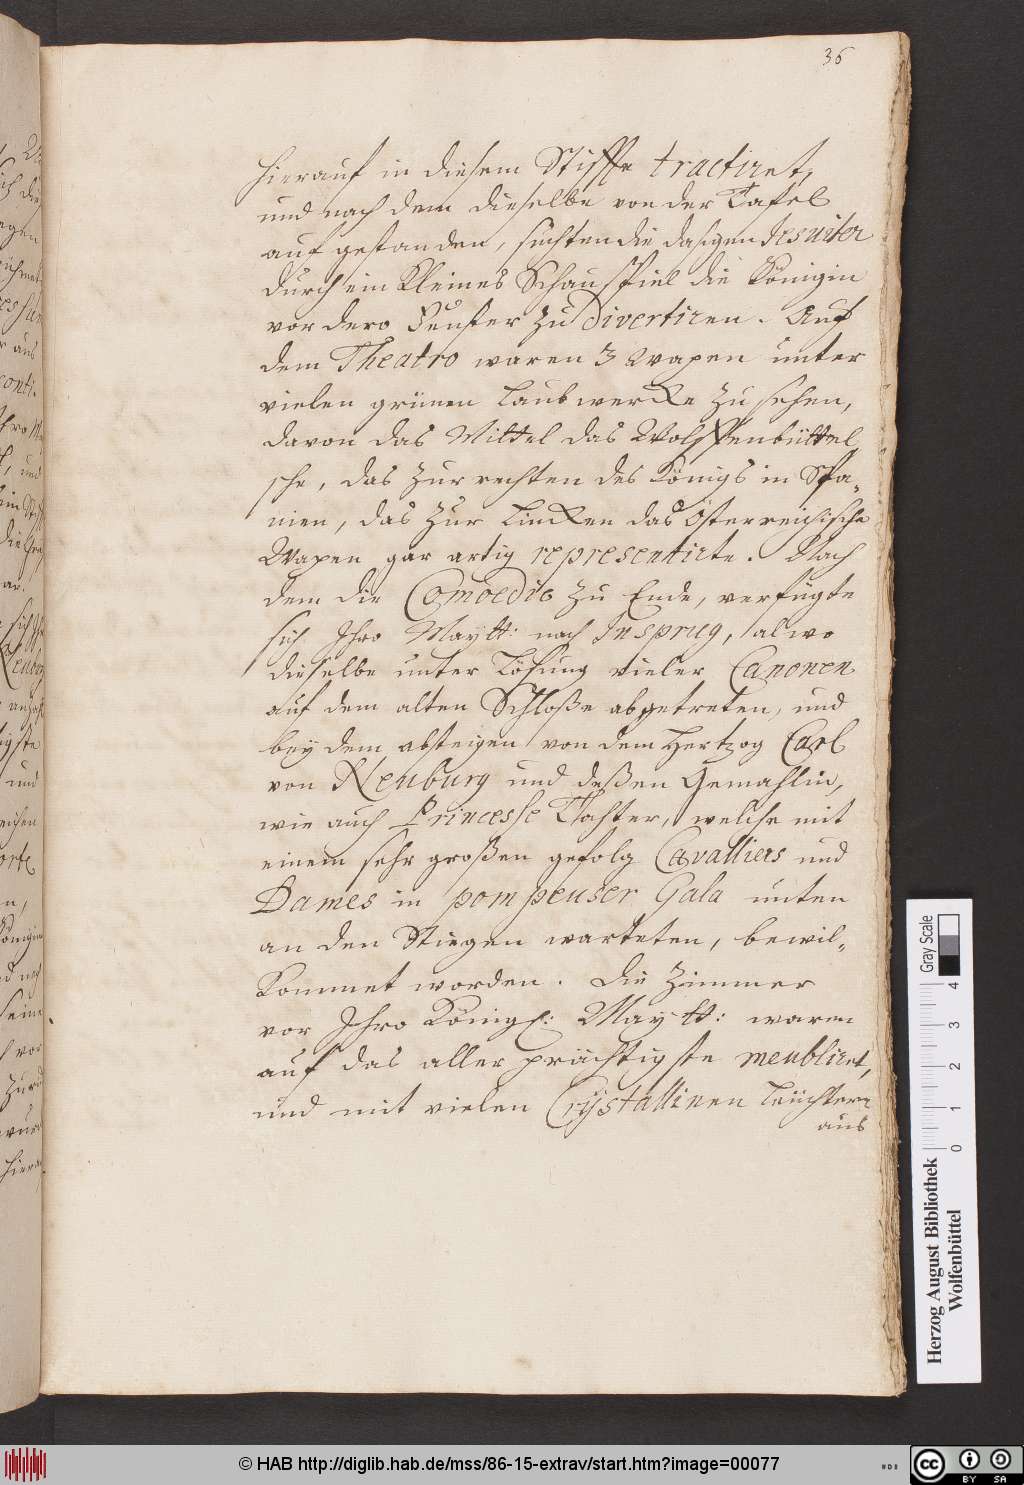 36
hierauf in diesem Stiffte tractiret,
und nach dem dieselbe von der Tafel
auf gestanden, suchten die dasigen Jesuiter
durch ein kleines Schauspiel die Königin
vor dero Fenster zu divertiren. Auf
dem Theatro waren 3 Wapen unter
vielen grünen Laubwercke zu sehen,
davon das Mittel das Wolffenbüttel
sche, das zur rechten des Königs in Spa-
nien, das zur Lincken das Österreichische
Wapen gar artig representirte. Nach
dem die Comoedie zu Ende, verfügte
sich Ihro Maytt: nach Insprug, alwo
dieselbe unter Lösung vieler Canonen
auf dem alten Schloße abgetreten, und
bey dem absteigen von dem Hertzog Carl
von Neuburg und deßen Gemahlin,
wie auch Princesse Tochter, welche mit
einem sehr großen gefolg Cavalliers und
Dames in pompeuser Gala unten
an den Stiegen warteten, bewil-
kommet worden. Die Zimmer
vor Ihro Königl: Maytt: waren
auf das aller prächtigste meubliret,
und mit vielen Crystallinen Leuchtern
aus
Gray Scale
0 1 2 3 4
Herzog August Bibliothek
Wolfenbüttel
© HAB http://diglib.hab.de/mss/86-15-extrav/start.htm?image=00077
cc BY SA